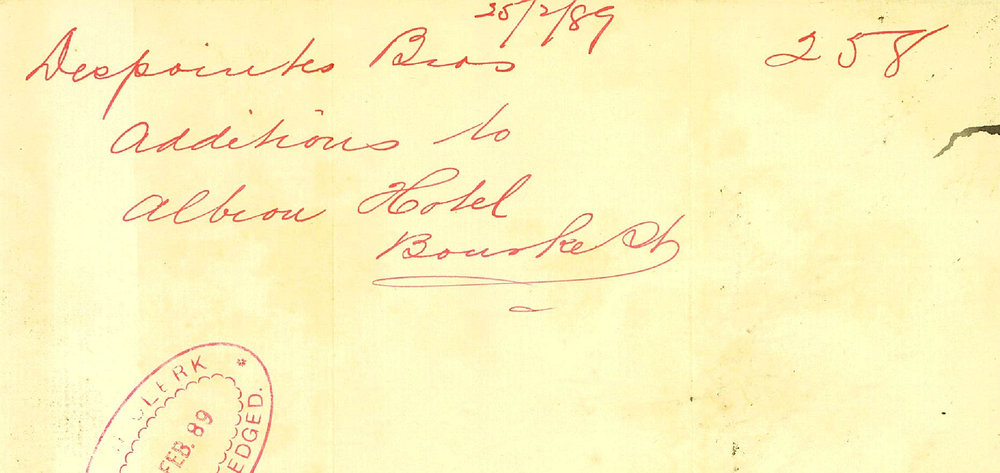 25/2/89
Despointes Bros 258
Additions to
Albion Hotel
Bourke St
CLERK *
FEB. 89
EDGED.